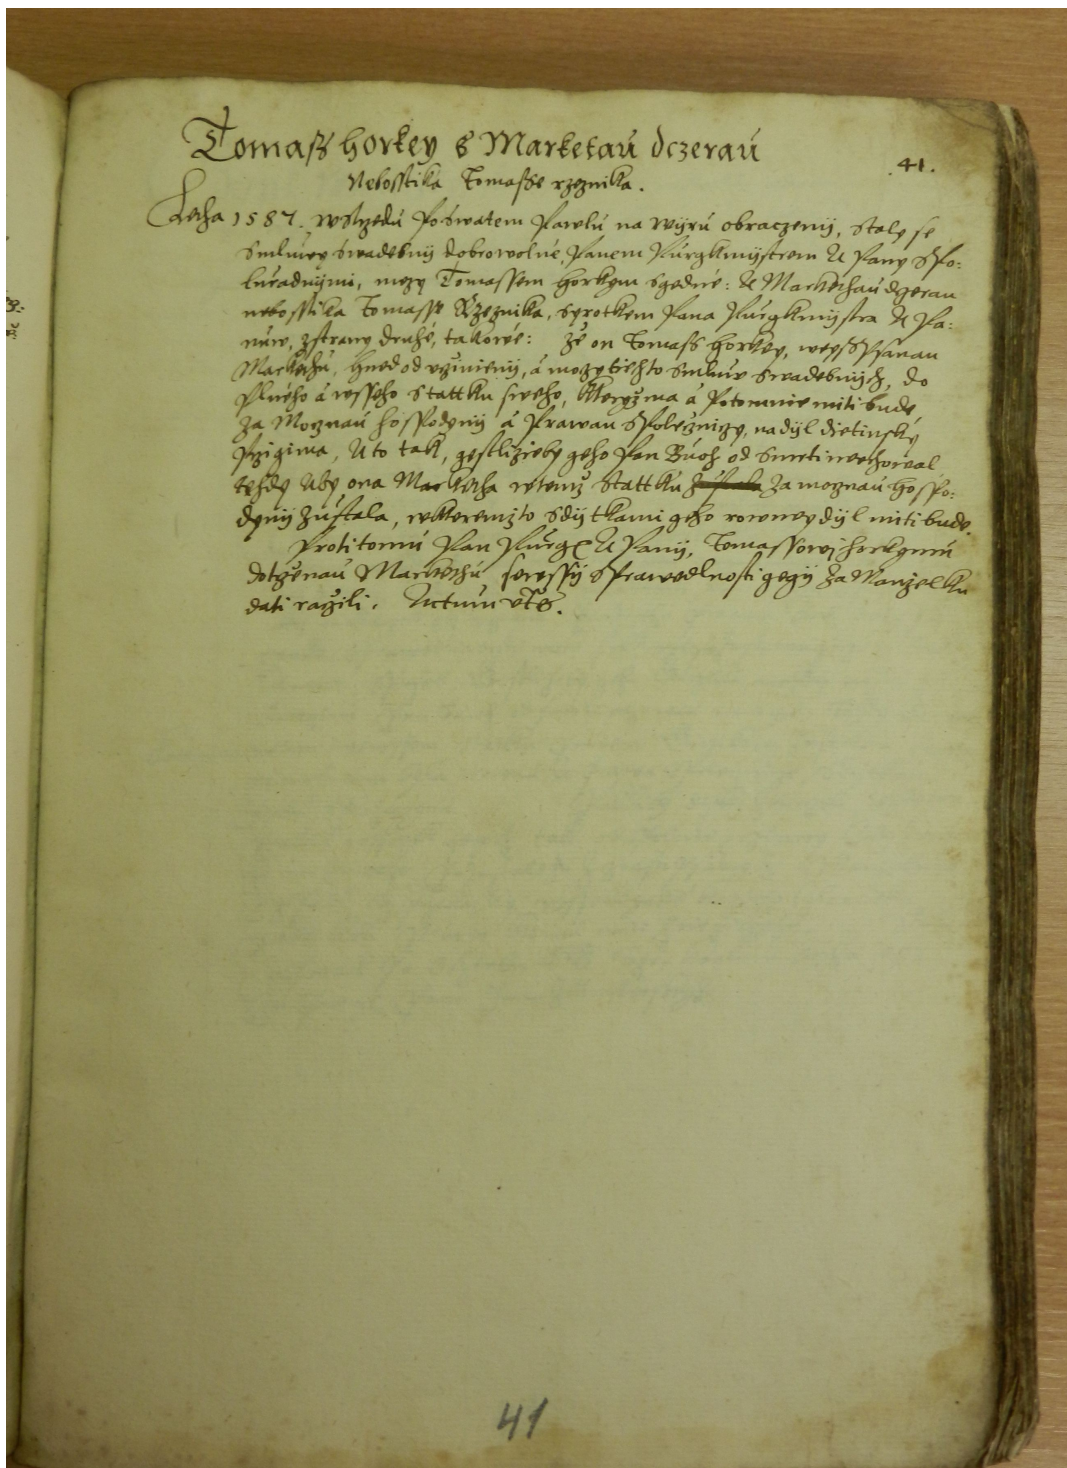 Tomass horkey s Marketaú dczeraú
41.
Nebosstika Tomasse rzeznika.
Letha 1587. wstrzedú po swatem Pawlú na wijrú obraczenij, staly se
Smlúwy swadebnij dobrowolné, Panem Púrgkmijstrem A Pany Spo-
luradnijmi, mezy Tomassem horkym s gedné: A Markethaú dczeraú
nebosstika Tomasse Rzeznika, syrotkem Pana Púrgkmijstra A Pa-
núw, z strany drúhé, takowé: Ze on Tomass horkey, weyss psanaú
Markethú, hned od vczinienij, á moczy tiechto Smlúw Swadebnijch, do
plného á wsseho Stattku sweho, kteryz ma á potomnie miti búdé,
za Mocznaú hospodynij á prawaú Spoleczniczy, na dijl dietinsky
przigima, A to tak, gestlizieby geho Pan Búoh od Smrti nevchowal
tehdy Aby ona Marketha wtemz Stattkú za moznaú hospo-
dynij zústala, w kteremzto s dijtkami geho rowney dijl miti bude.
Proti tomú Pan Púrgk A Panij, Tomassowj horkymú
dotczenaú Markethú se wssij Sprawedlnosti gegij za Manzelkú
dati raczili. Actum vts.
41